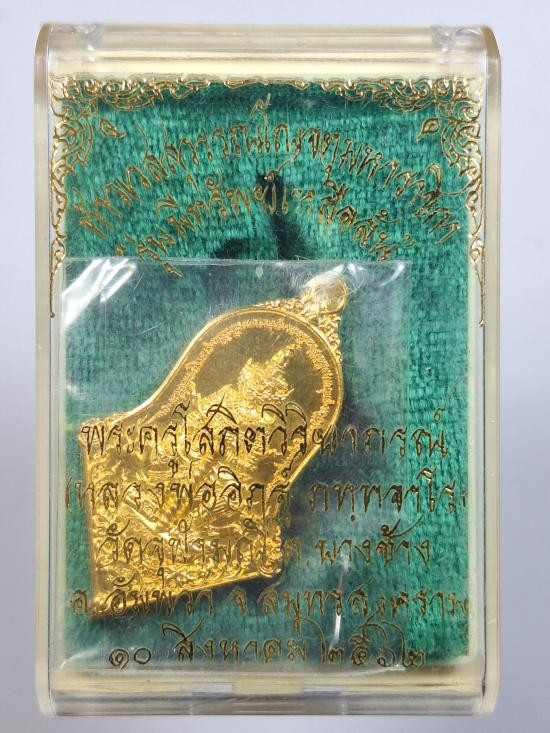 ท้าวเวสสุวรรณโณจตุมหาราชิกา
รุ่น มีทรัพย์เหลือล้น
พระครูโสภิตวิริยาภรณ์
(หลวงพ่ออิฏฐ์ ภทฺทจาโร)
วัดจุฬามณี ต.บางช้าง
อ.อัมพวา จ.สมุทรสงคราม
๑๐ สิงหาคม ๒๕๖๒